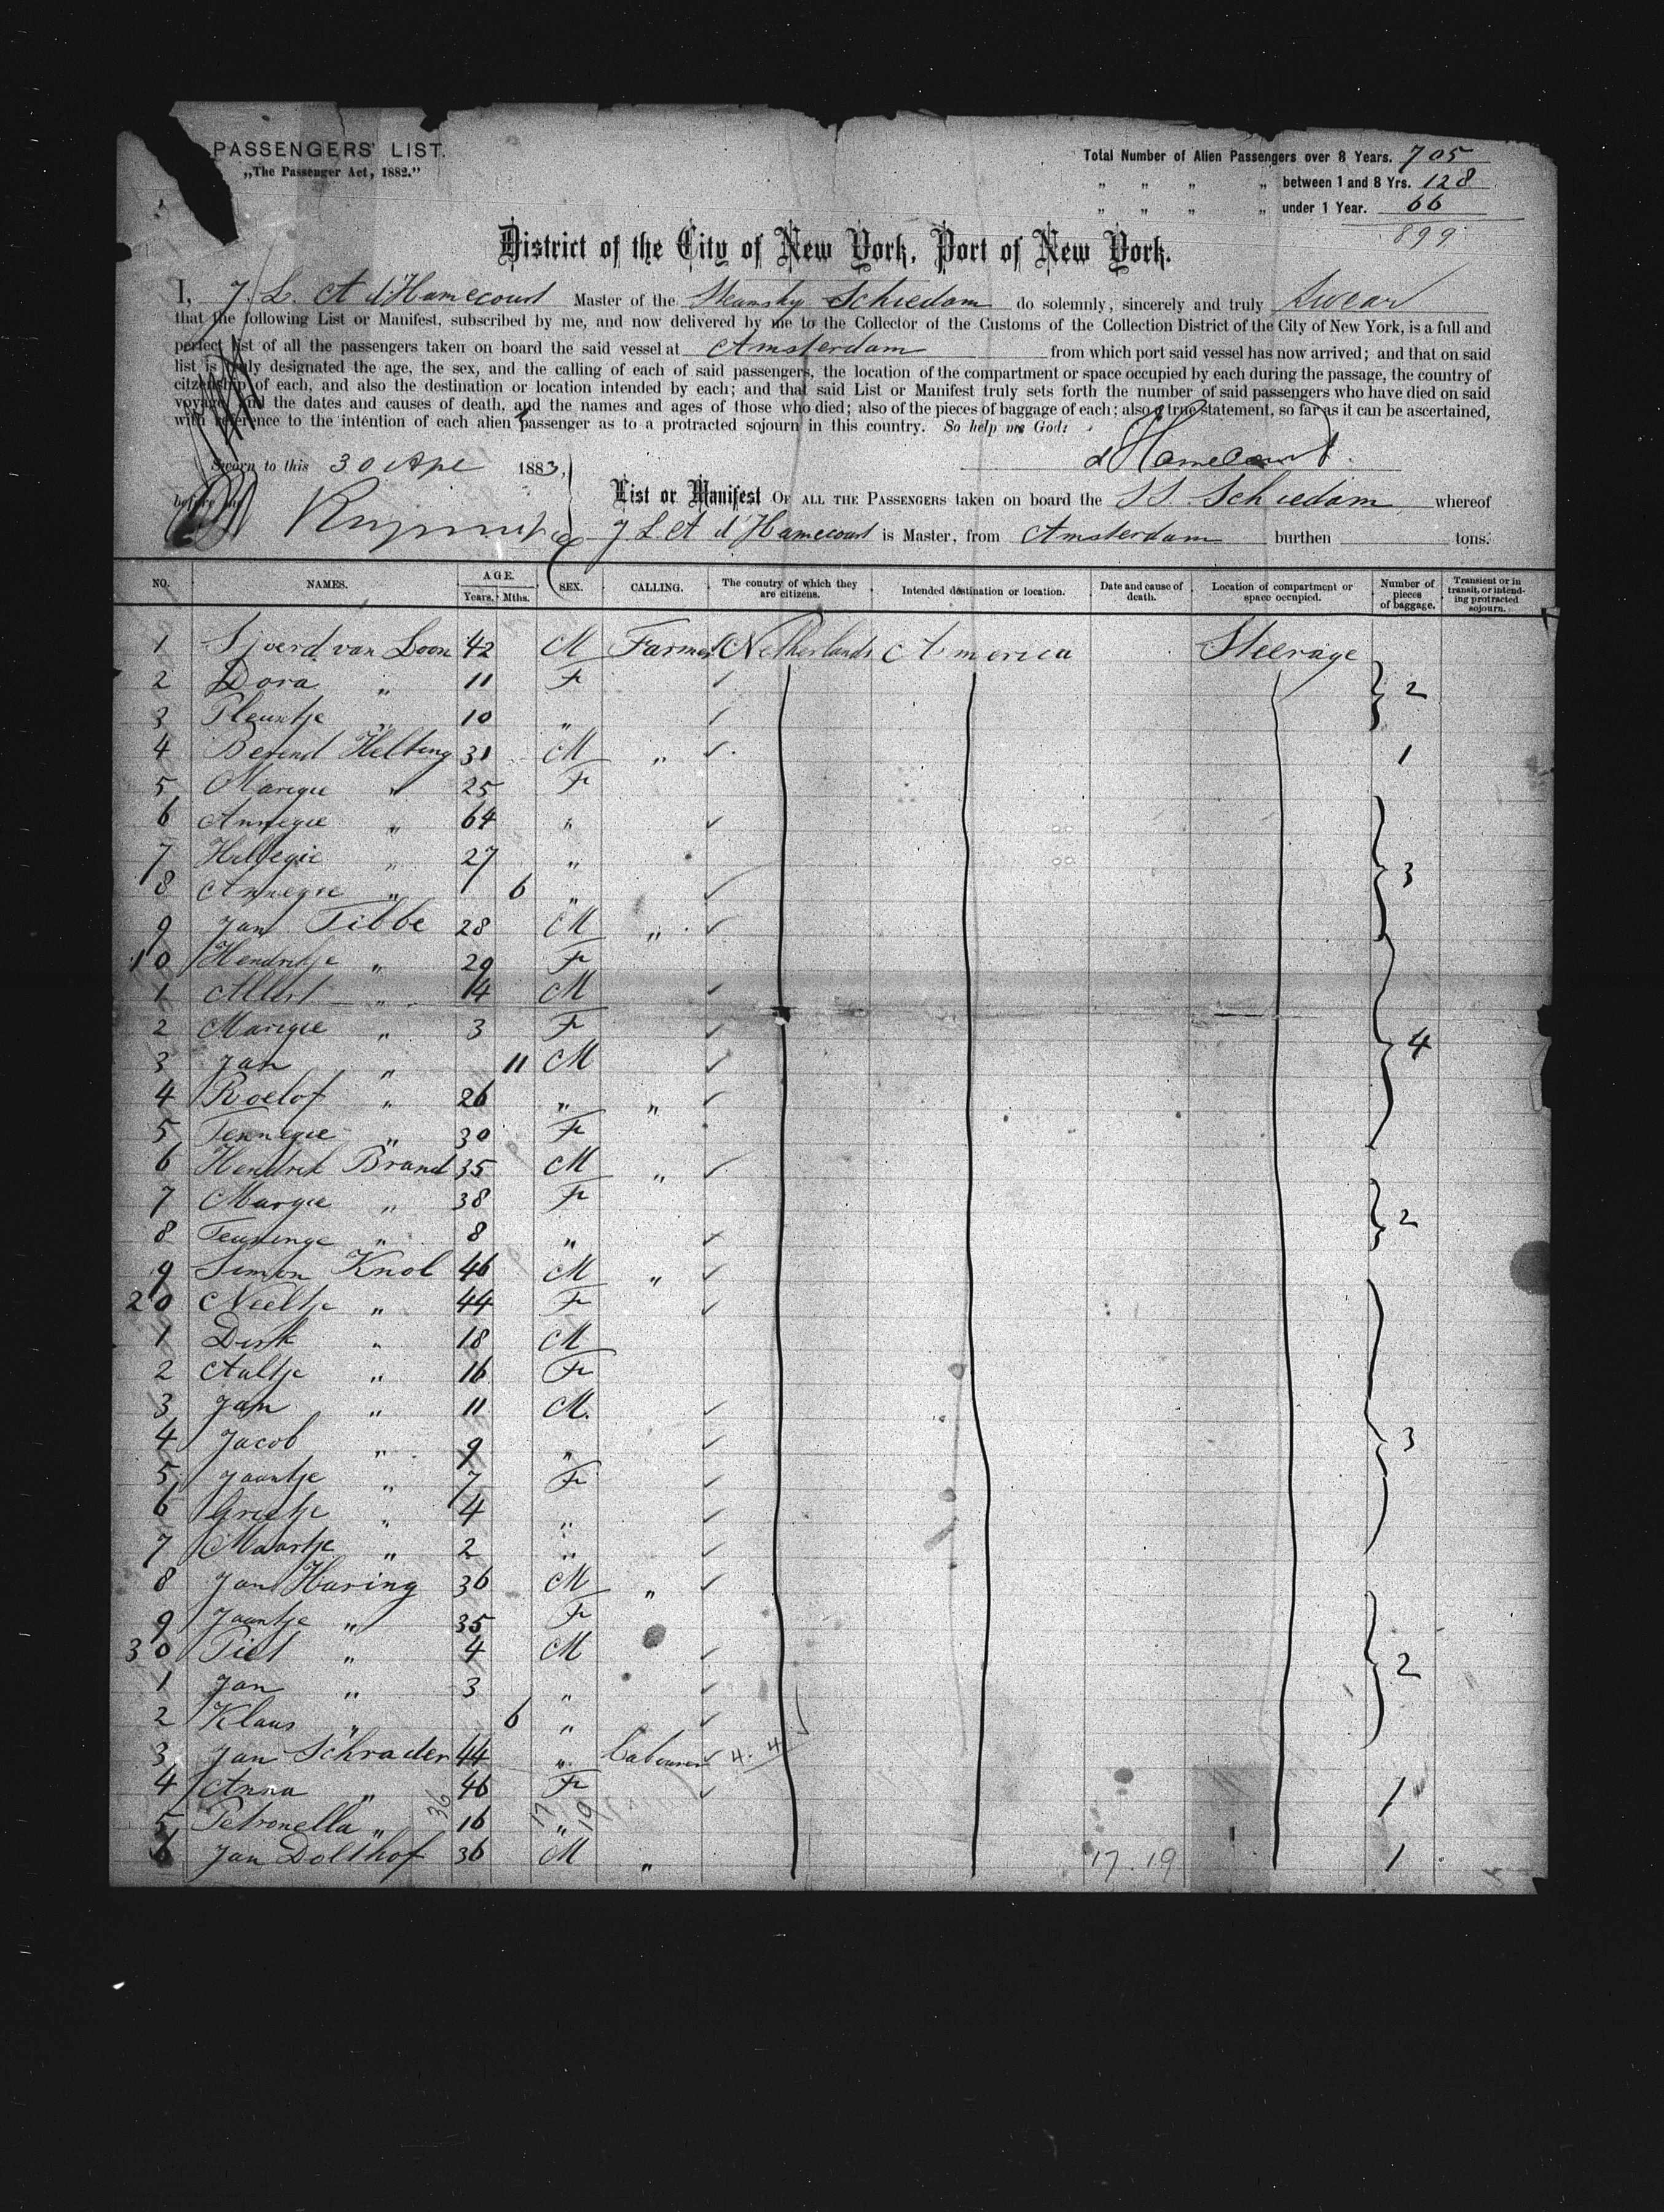 PASSENGERS' LIST.
„The Passenger Act, 1882."
Total Number of Alien Passengers over 8 Years. 705
„ „ „ „ between 1 and 8 Yrs. 128
„ „ „ „ under 1 Year. 66
899
District of the City of New York, Port of New York.
I, J. L. A d'Hamecourt Master of the Steamship Schiedam do solemnly, sincerely and truly Swear
that the following List or Manifest, subscribed by me, and now delivered by me to the Collector of the Customs of the Collection District of the City of New York, is a full and
perfect list of all the passengers taken on board the said vessel at Amsterdam from which port said vessel has now arrived; and that on said
list is truly designated the age, the sex, and the calling of each of said passengers, the location of the compartment or space occupied by each during the passage, the country of
citizenship of each, and also the destination or location intended by each; and that said List or Manifest truly sets forth the number of said passengers who have died on said
voyage, and the dates and causes of death, and the names and ages of those who died; also of the pieces of baggage of each; also a true statement, so far as it can be ascertained,
with reference to the intention of each alien passenger as to a protracted sojourn in this country. So help me God:
d'Hamecourt.
Sworn to this 30 Apl 1883,
before me
List or Manifest OF ALL THE PASSENGERS taken on board the SS. Schiedam whereof
J L. A d'Hamecourt is Master, from Amsterdam burthen tons.
NO. NAMES. AGE. Years. Mths. SEX. CALLING. The country of which they are citizens. Intended destination or location. Date and cause of death. Location of compartment or space occupied. Number of pieces of baggage. Transient or in transit, or intending protracted sojourn.
1 Sjoerd van Loon 42 M Farmer Netherlands America Steerage
2 Dora „ 11 F 2
3 Pleuntje „ 10 „
4 Berend Helting 31 M „ 1
5 Marigie „ 25 F
6 Annegie „ 64 „
7 Hillegie „ 27 „
8 Annegie „ 6 „ 3
9 Jan Tibbe 28 M „
10 Hendrikje „ 29 F
1 Albert „ 14 M
2 Marigie „ 3 F
3 Jan „ 11 M 4
4 Roelof „ 26 „ „
5 Tennegie „ 30 F
6 Hendrik Brand 35 M „
7 Margie „ 38 F 2
8 Teuninge „ 8 „
9 Simon Knol 46 M „
20 Neeltje „ 44 F
1 Dirk „ 18 M
2 Aaltje „ 16 F
3 Jan „ 11 M.
4 Jacob „ 9 „ 3
5 Jaantje „ 7 F
6 Grietje „ 4 „
7 Maartje „ 2 „
8 Jan Haring 36 M „
9 Jaantje „ 35 F
30 Piet „ 4 M 2
1 Jan „ 3 „
2 Klaas „ 6 „
3 Jan Schrader 44 „ Labourer 4. 4
4 Anna „ 46 F 1
5 Petronella „ 16 „ 36 17 19
6 Jan Dolthof 36 M „ 17. 19 1